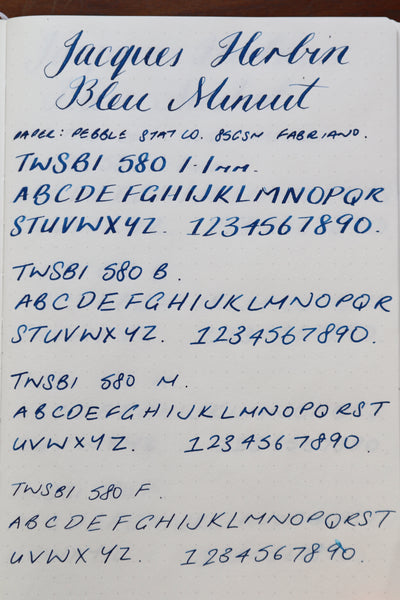 Jacques Herbin
Bleu Minuit
PAPER: PEBBLE STAT CO. 85GSM FABRIANO.
TWSBI 580 1.1mm.
ABCDEFGHIJKLMNOPQR
STUVWXYZ. 1234567890.
TWSBI 580 B.
ABCDEFGHIJKLMNOPQR
STUVWXYZ. 1234567890.
TWSBI 580 M.
ABCDEFGHIJKLMNOPQRST
UVWXYZ. 1234567890.
TWSBI 580 F.
ABCDEFGHIJKLMNOPQRST
UVWXYZ. 1234567890.